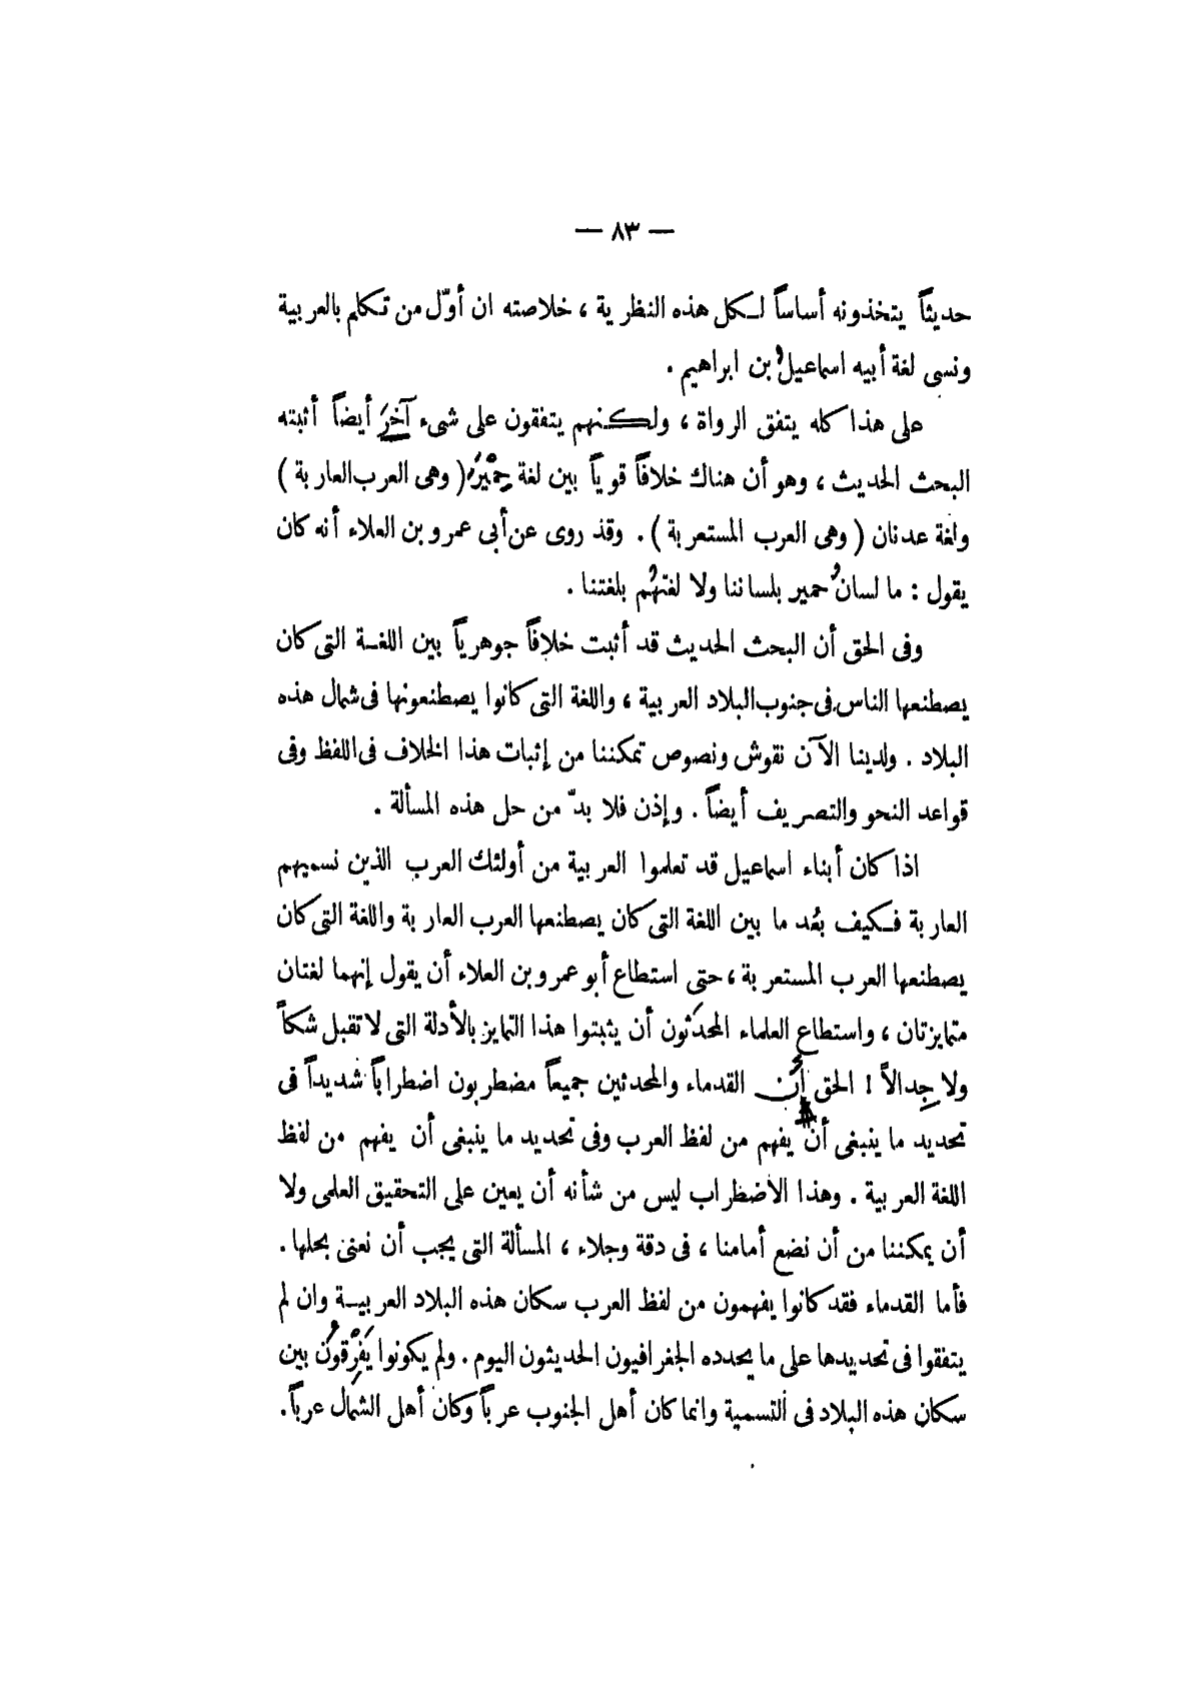 — ٨٣ —
حديثاً يتخذونه أساساً لكل هذه النظرية ، خلاصته ان أوّل من تكلم بالعربية
ونسى لغة أبيه اسماعيلُ بن ابراهيم .
على هذا كله يتفق الرواة ، ولكنهم يتفقون على شىء آخرَ أيضاً أثبته
البحث الحديث ، وهو أن هناك خلافاً قوياً بين لغة حِمْيَرُ ( وهى العرب العاربة )
ولغة عدنان ( وهى العرب المستعربة ) . وقد روى عن أبى عمرو بن العلاء أنه كان
يقول : ما لسانُ حمير بلساننا ولا لغتهُم بلغتنا .
وفى الحق أن البحث الحديث قد أثبت خلافاً جوهرياً بين اللغة التى كان
يصطنعها الناس فى جنوب البلاد العربية ، واللغة التى كانوا يصطنعونها فى شمال هذه
البلاد . ولدينا الآن نقوش ونصوص تمكننا من إثبات هذا الخلاف فى اللفظ وفى
قواعد النحو والتصريف أيضاً . وإذن فلا بدّ من حل هذه المسألة .
اذا كان أبناء اسماعيل قد تعلموا العربية من أولئك العرب الذين نسميهم
العاربة فكيف بَعُد ما بين اللغة التى كان يصطنعها العرب العاربة واللغة التى كان
يصطنعها العرب المستعربة ، حتى استطاع أبو عمرو بن العلاء أن يقول إنهما لغتان
متمايزتان ، واستطاع العلماء المحدَثون أن يثبتوا هذا التمايز بالأدلة التى لا تقبل شكاً
ولا جِدالاً ! الحق أن القدماء والمحدثين جميعاً مضطربون اضطراباً شديداً فى
تحديد ما ينبغى أن يفهم من لفظ العرب وفى تحديد ما ينبغى أن يفهم من لفظ
اللغة العربية . وهذا الاضطراب ليس من شأنه أن يعين على التحقيق العلمى ولا
أن يمكننا من أن نضع أمامنا ، فى دقة وجلاء ، المسألة التى يجب أن نعنى بحلها .
فأما القدماء فقد كانوا يفهمون من لفظ العرب سكان هذه البلاد العربية وان لم
يتفقوا فى تحديدها على ما يحدده الجغرافيون الحديثون اليوم . ولم يكونوا يَفْرِقُون بين
سكان هذه البلاد فى التسمية وانما كان أهل الجنوب عرباً وكان أهل الشمال عرباً .